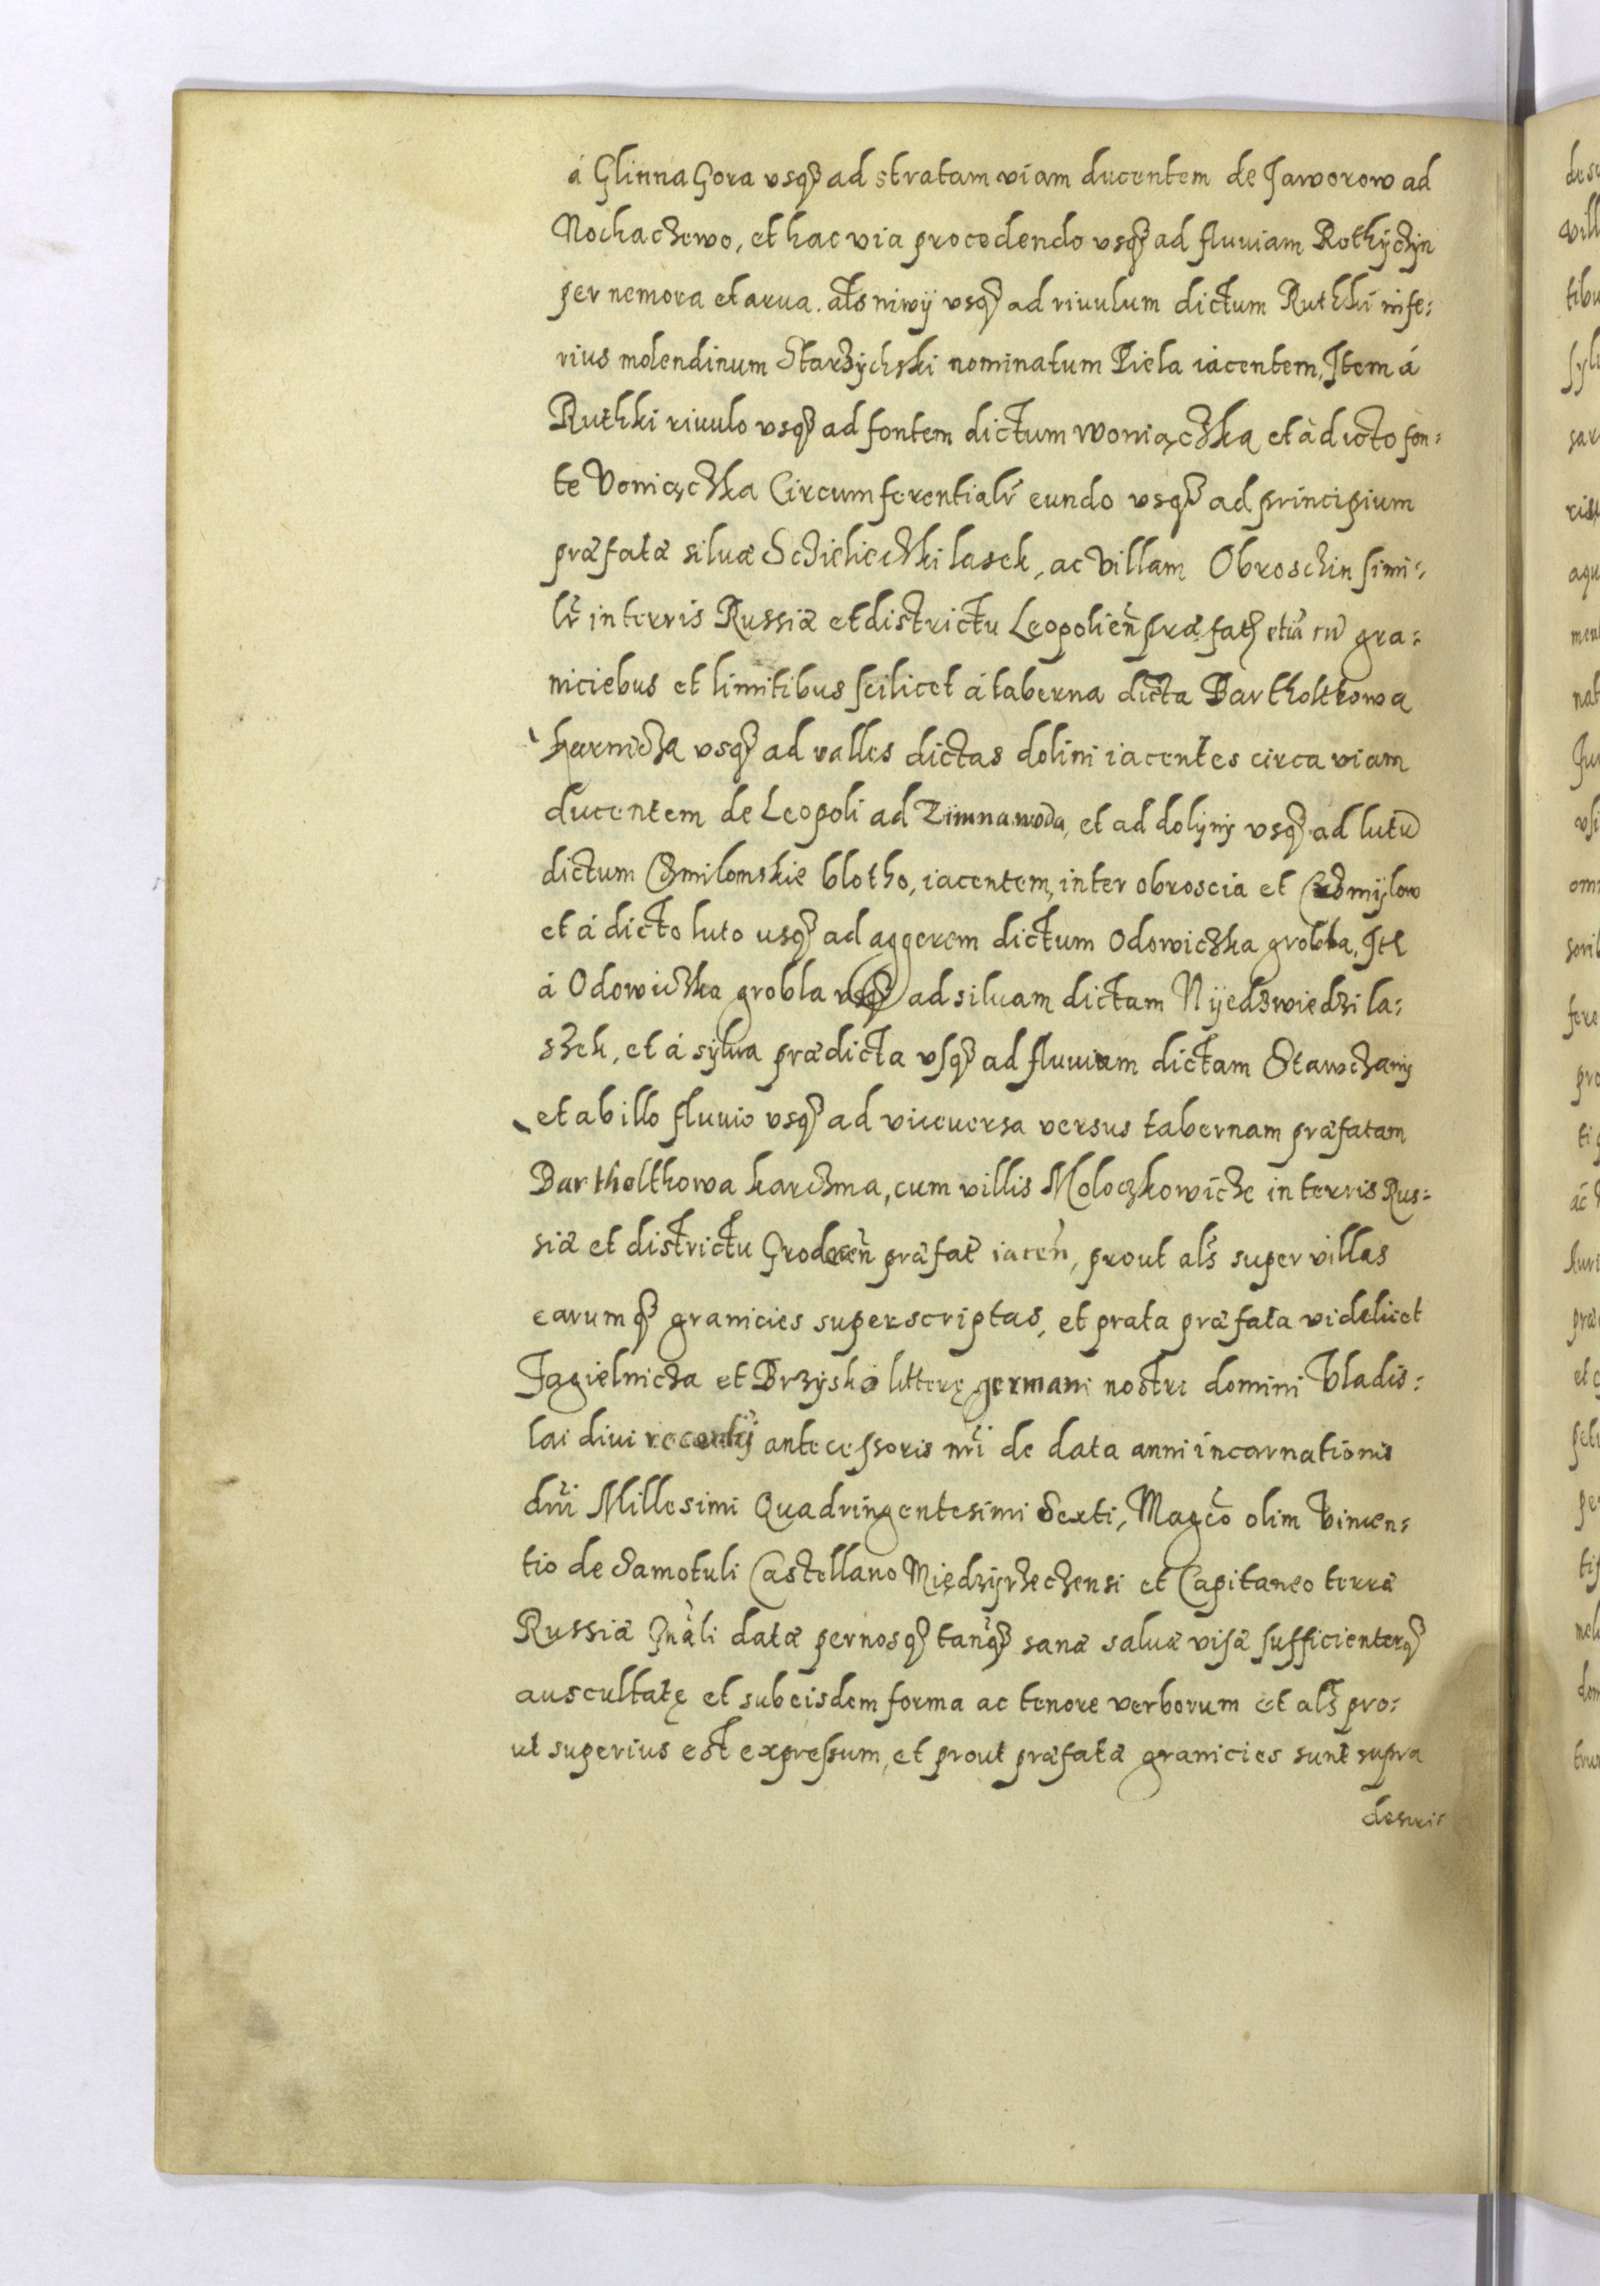 á Glinna Gora usqꝫ ad stratam viam ducentem de Jaworow ad
Nochaczewo, et hac via procedendo vsqꝫ ad fluviam Rothÿczÿn
per nemora et arua. als niwÿ vsqꝫ ad riuulum dictum Ruthki infe:
rius molendinum Starzÿchski nominatum Piela iacentem, Item á
Ruthki riuulo vsqꝫ ad fontem dictum woniączka et à dicto fon:
te Voniączka Circumferentialr̃ eundo vsqꝫ ad principium
præfatæ siluæ Sczieleczki lasek, ac Villam Obroschin simi:
lr̃ in terris Russiæ et districtu Leopolień præfatꝫ etiã cũ gra:
niciebus et limitibus scilicet á taberna dicta Bartholthowa
karniczka vsqꝫ ad valles dictas dolini iacentes circa viam
ducentem de Leopoli ad Zimna woda, et ad dolÿnÿ vsqꝫ ad lutũ
dictum Czmilomskie blotho, iacentem, inter obroscia et Czmÿlow
et á dicto luto usqꝫ ad aggerem dictum Odowiczka grobla, Itẽ
á Odowiczka grobla usqꝫ ad siluam dictam Nÿedzwiedzi la:
szek, et á sylua prædicta vsqꝫ ad fluuium dictam Stawczanÿ
et ab illo fluuio vsqꝫ ad viceuersa versus tabernam præfatam
Bartholthowa karczma, cum villis Moloczkowicze in terris Rus:
siæ et districtu Grodecẽn præfat iaceñ, prout als̃ super villas
earumqꝫ granicies superscriptas, et prata præfata videlicet
Jagielnicza et Brzysko litterę germani nostri domini Vladis:
lai diui antecessoris nr̃i de data anni incarnationis
dñi Millesimi Quadringentesimi Sexti, Magc̃o olim Vincen:
tio de Samotuli Castellano Międzÿrzeczensi et Capitaneo terræ
Russiæ Gñali datæ per nosqꝫ tanqꝫ sanæ saluæ visæ sufficienterqꝫ
auscultatę et sub eisdem forma ac tenore verborum et als̃ pro:
ut superius est expressum, et prout præfatæ granicies sunt supra
descri: